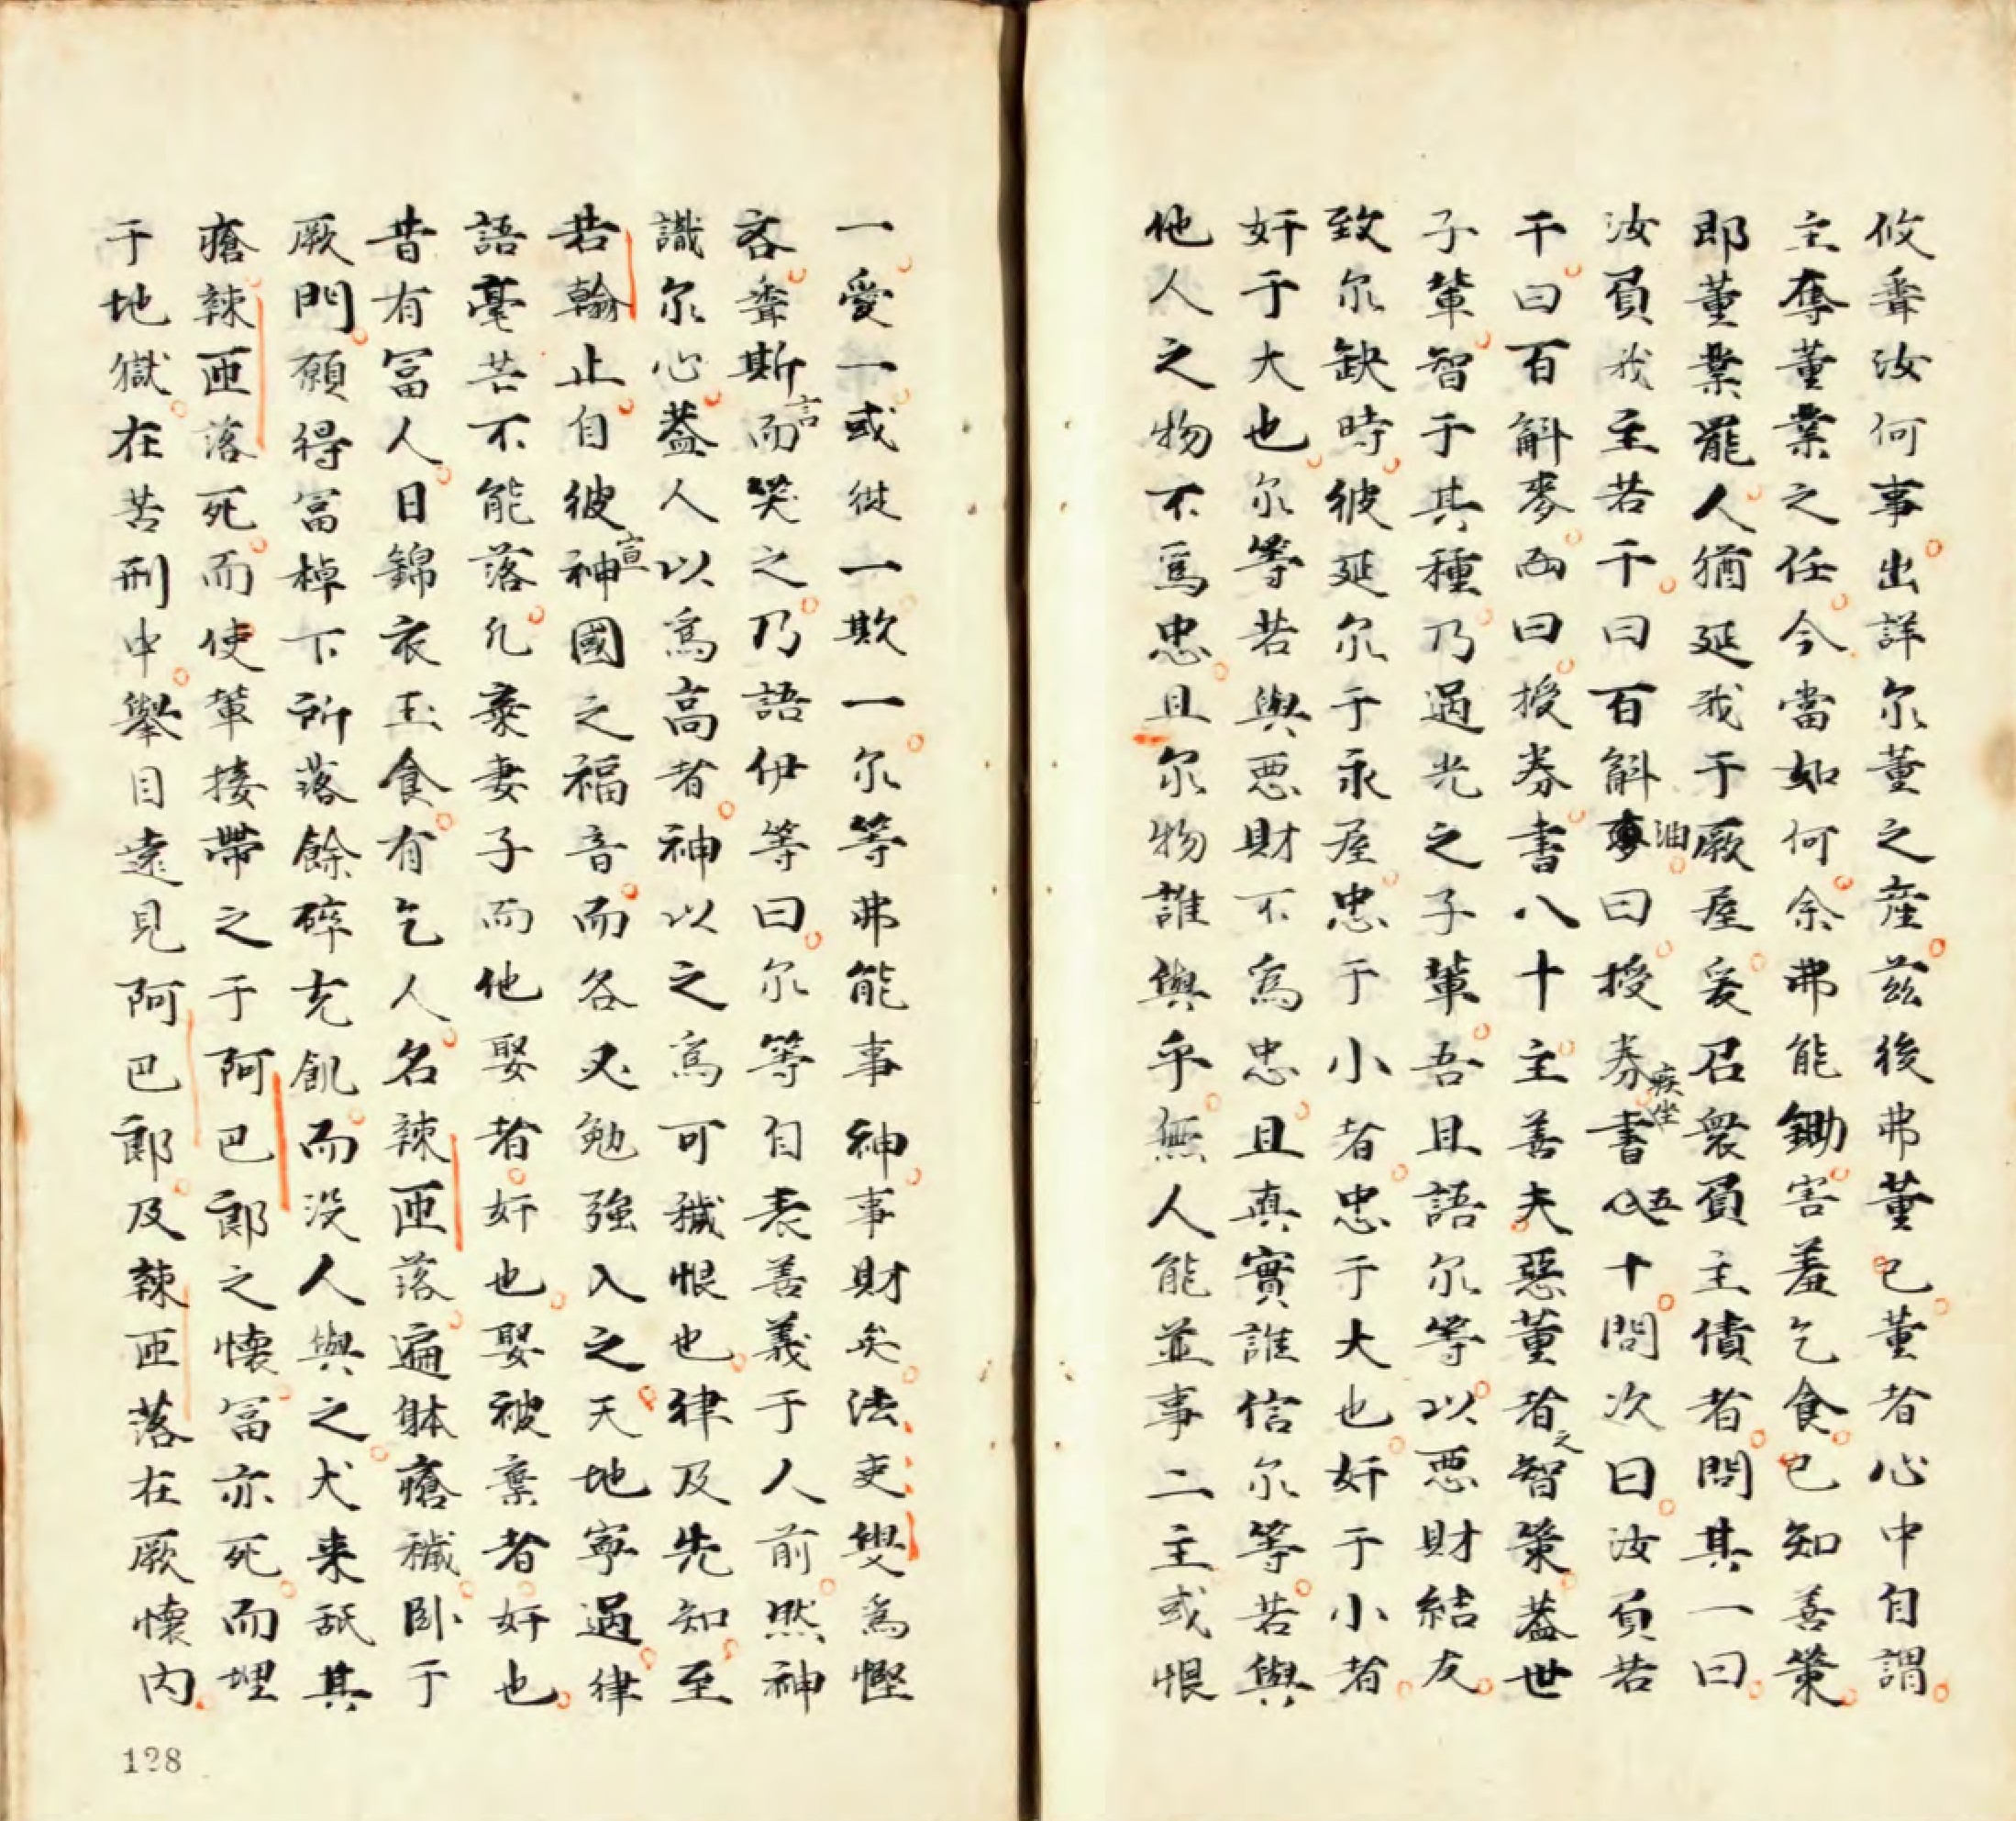 攸聞汝何事出詳尔董之產兹後弗董已董者心中自謂
主奪董業之任今當如何余弗能鋤害羞乞食已知善策
即董業罷人猶延我于厥屋妥召衆負主債者問其一曰
汝負我主若干曰百斛油曰授券疾坐書五十問次曰汝負若
干曰百斛麥而曰授券書八十主善夫惡董者之智策蓋世
子輩智于其種乃過光之子輩吾且語尔等以惡財結友
致尔缺時彼延尔于永屋忠于小者忠于大也奸于小者
奸于大也尔等若與惡財不為忠且真實誰信尔等若與
他人之物不為忠且尔物誰與乎無人能並事二主或恨
一愛一或從一欺一尔等弗能事神事財矣法吏㜸為慳
吝聞斯言而哭之乃語伊等曰尔等自表善義于人前然神
識尔心蓋人以為高者神以之為可穢恨也律及先知至
若翰止自彼宣神國之福音而各又勉強入之天地寧過律
語毫芒不能落凡棄妻子而他娶者奸也娶被棄者奸也
昔有冨人日錦衣玉食有乞人名辣匝落遍躰瘡穢卧于
厥門願得冨棹下所落餘碎充飢而没人與之犬来舐其
瘡辣匝落死而使輩接帶之于阿巴郎之懐冨亦死而埋
于地獄在苦刑中舉目遠見阿巴郎及辣匝落在厥懐内
128